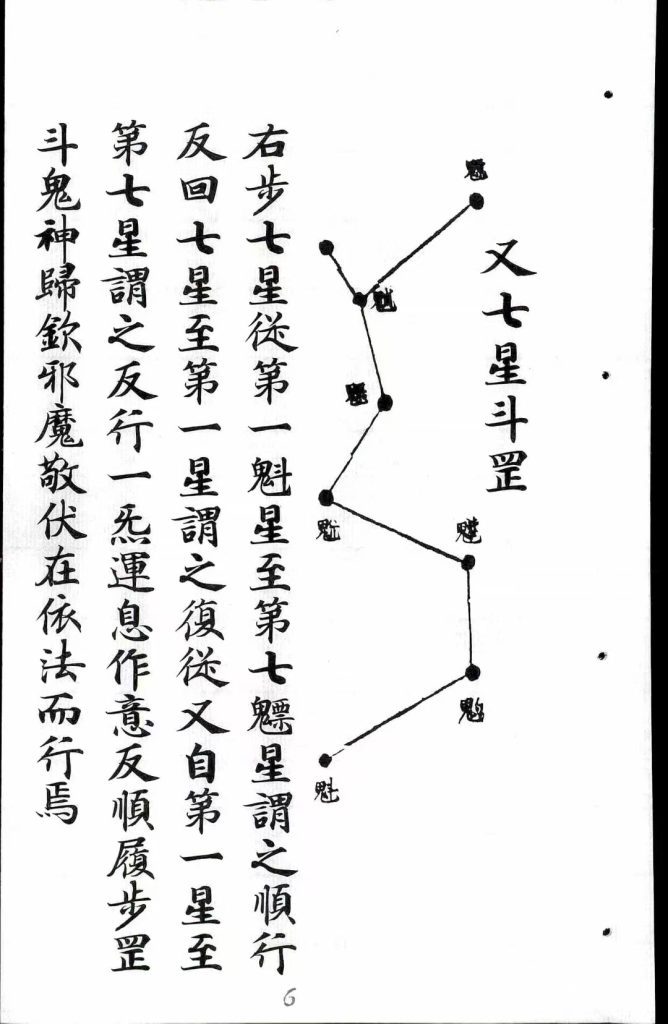 又七星斗罡
魒
魁
右步七星從第一魁星至第七魒星謂之順行
反回七星至第一星謂之復從又自第一星至
第七星謂之反行一炁運息作意反順履步罡
斗鬼神歸欽邪魔敬伏在依法而行焉
6